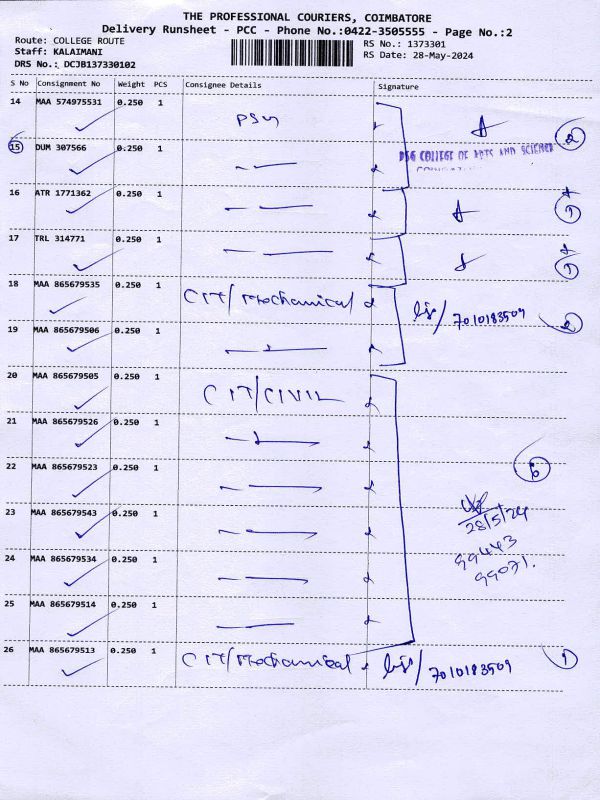 THE PROFESSIONAL COURIERS, COIMBATORE
Delivery Runsheet - PCC - Phone No.:0422-3505555 - Page No.:2
Route: COLLEGE ROUTE
RS No.: 1373301
Staff: KALAIMANI
RS Date: 28-May-2024
DRS No.: DCJB137330102
S No Consignment No Weight PCS Consignee Details Signature
14 MAA 574975531 0.250 1 PSG
2
15 DUM 307566 0.250 1
PSG COLLEGE OF ARTS AND SCIENCE
16 ATR 1771362 0.250 1
1
17 TRL 314771 0.250 1
1
18 MAA 865679535 0.250 1 CIT/Mechanical 7010183509
2
19 MAA 865679506 0.250 1
20 MAA 865679505 0.250 1 CIT/CIVIL
21 MAA 865679526 0.250 1
22 MAA 865679523 0.250 1
6
23 MAA 865679543 0.250 1
28/5/24
99443
99071.
24 MAA 865679534 0.250 1
25 MAA 865679514 0.250 1
26 MAA 865679513 0.250 1 CIT/Mechanical 7010183509
1